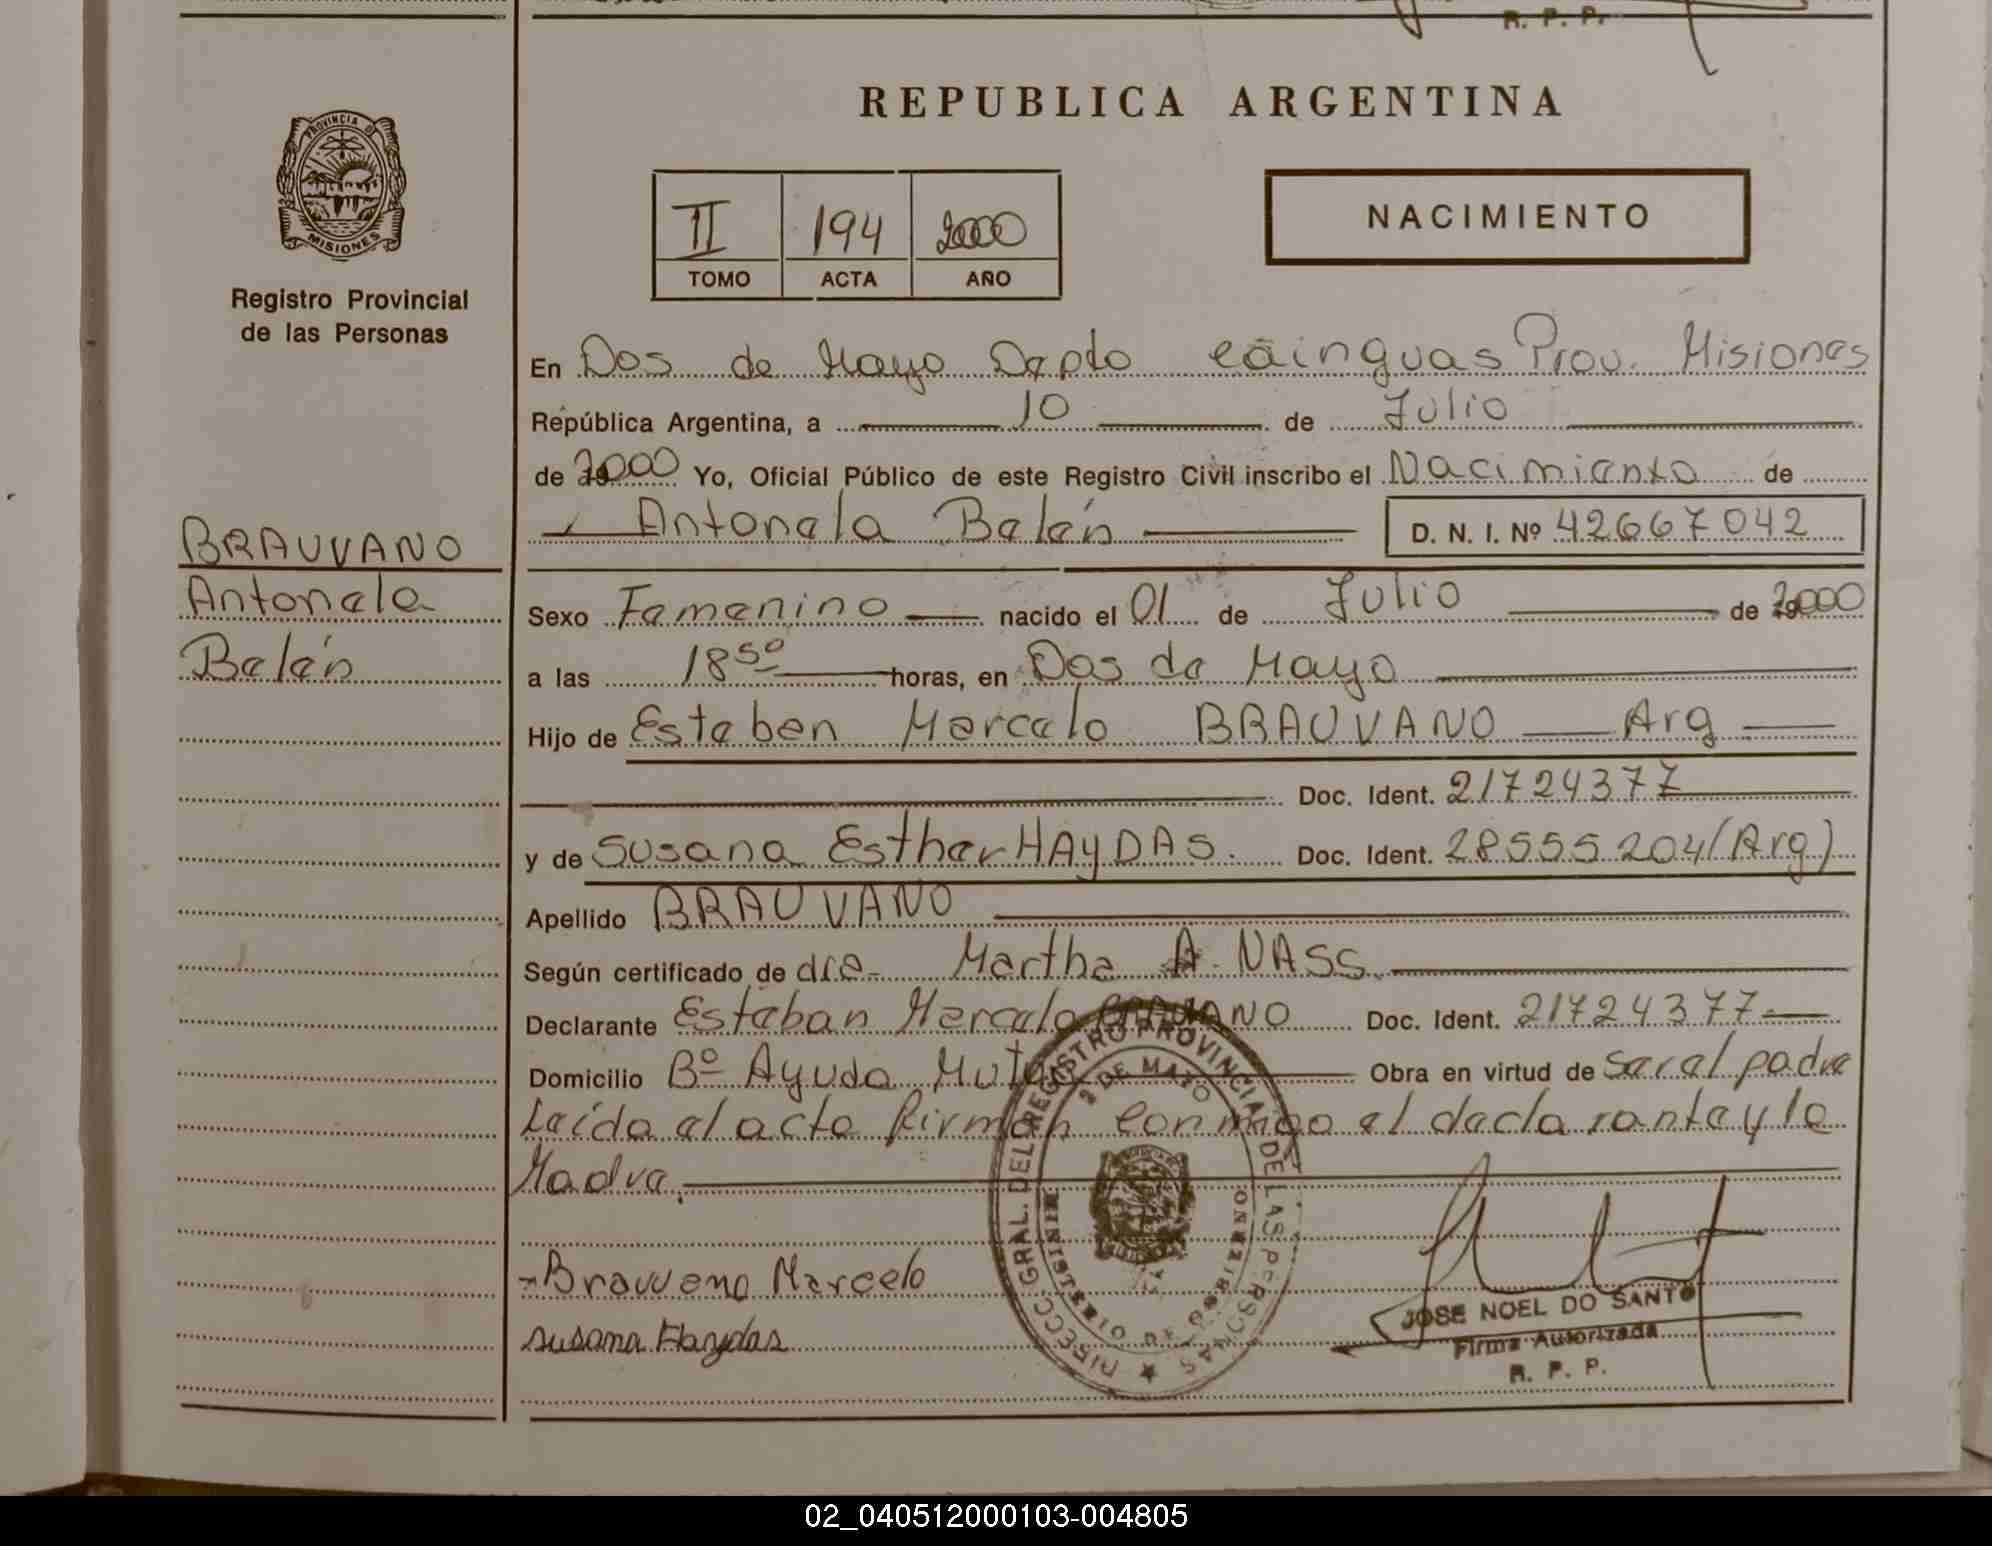 R. P. P.
REPUBLICA ARGENTINA
PROVINCIA DE
MISIONES
Registro Provincial
de las Personas
II 194 2000
TOMO ACTA AÑO
NACIMIENTO
En Dos de Mayo Depto cainguas Prov. Misiones
República Argentina, a 10 de Julio
de 2000 Yo, Oficial Público de este Registro Civil inscribo el Nacimiento de
Antonela Belén D. N. I. Nº 42667042
BRAUVANO
Antonela
Belén
Sexo Femenino nacido el 01 de Julio de 2000
a las 18 50 horas, en Dos de Mayo
Hijo de Esteban Marcelo BRAUVANO Arg
Doc. Ident. 21724377
y de Susana Esther HAyDAS. Doc. Ident. 28555204 (Arg)
Apellido BRAUVANO
Según certificado de dra Martha A. NASS
Declarante Esteban Marcelo BRAUVANO Doc. Ident. 21724377
Domicilio Bº Ayuda Mutua Obra en virtud de ser el padre
Leída el acta firman conmigo el declarante y la
Madre.
Brauvano Marcelo
Susana Haydas
DIRECC. GRAL. DEL REGISTRO PROVINCIAL DE LAS PERSONAS
2 DE MAYO
MINISTERIO DE GOBIERNO
JOSE NOEL DO SANTO
Firma Autorizada
R. P. P.
02_040512000103-004805